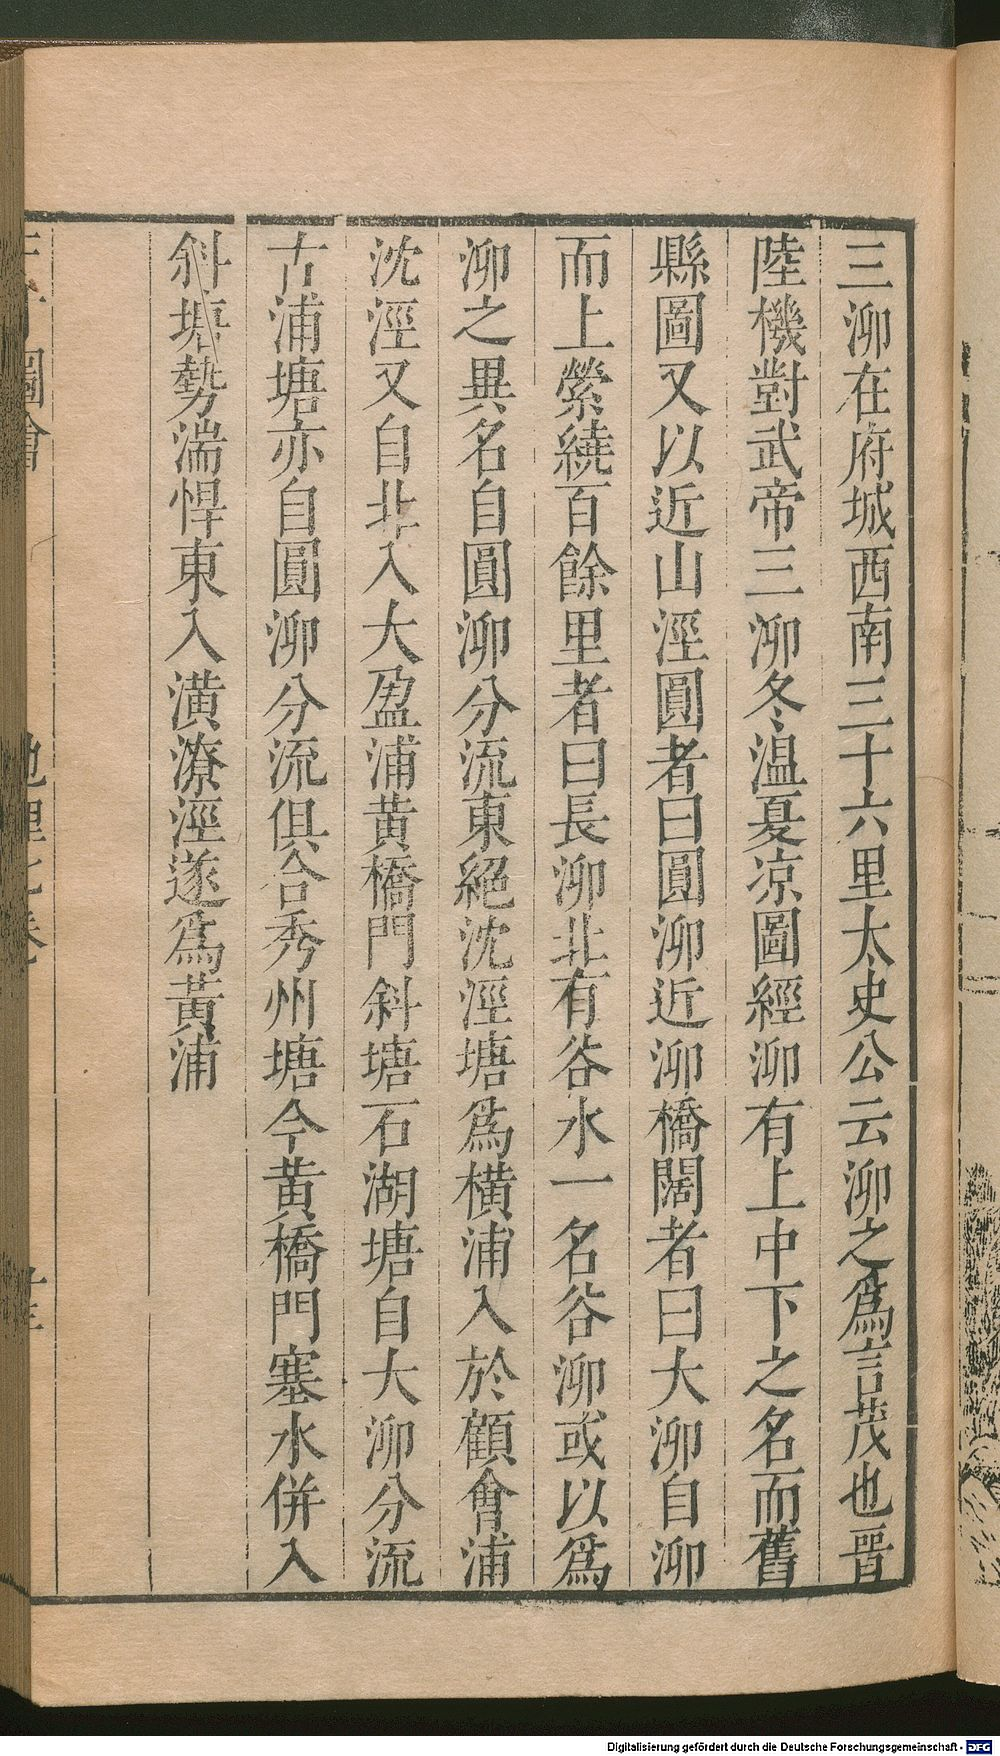 三泖在府城西南三十六里太史公云泖之爲言茂也晋
陸機對武帝三泖冬温夏凉圖經泖有上中下之名而舊
縣圖又以近山涇圓者曰圓泖近泖橋闊者曰大泖自泖
而上縈繞百餘里者曰長泖北有谷水一名谷泖或以爲
泖之異名自圓泖分流東絕沈涇塘爲橫浦入於顧會浦
沈涇又自北入大盈浦黃橋門斜塘石湖塘自大泖分流
古浦塘亦自圓泖分流俱合秀州塘今黃橋門塞水併入
斜塘勢湍悍東入潢潦涇遂爲黃浦
圖會 地理七卷
Digitalisierung gefördert durch die Deutsche Forschungsgemeinschaft - DFG